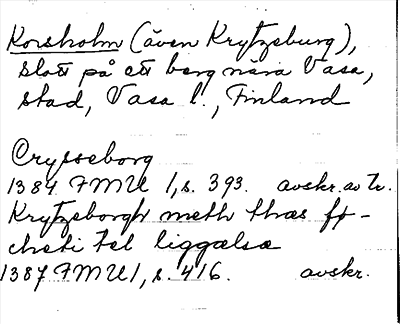 Korsholm (även Krytzeburg),
slott på ett berg nära Vasa,
stad, Vasa l., Finland
Crysseborg
1384 FMU 1, s. 393. avskr. av
Krytzeborgh meth thæs
til liggælsæ
1387 FMU 1, s. 416. avskr.